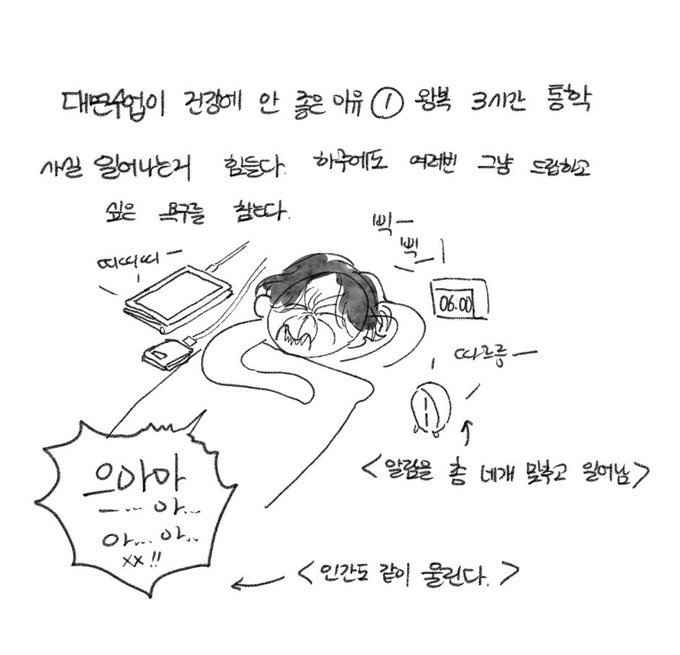 대면수업이 건강에 안 좋은 이유 ① 왕복 3시간 통학
사실 일어나는거 힘들다. 하루에도 여러번 그냥 드랍하고
싶은 욕구를 참는다.
삑ー
삑ー
띠띠띠ー
06.00
따르릉ー
<알람을 총 네개 맞추고 일어남>
으아아
ー… 아…
아… 아..
xx!!
<인간도 같이 울린다.>